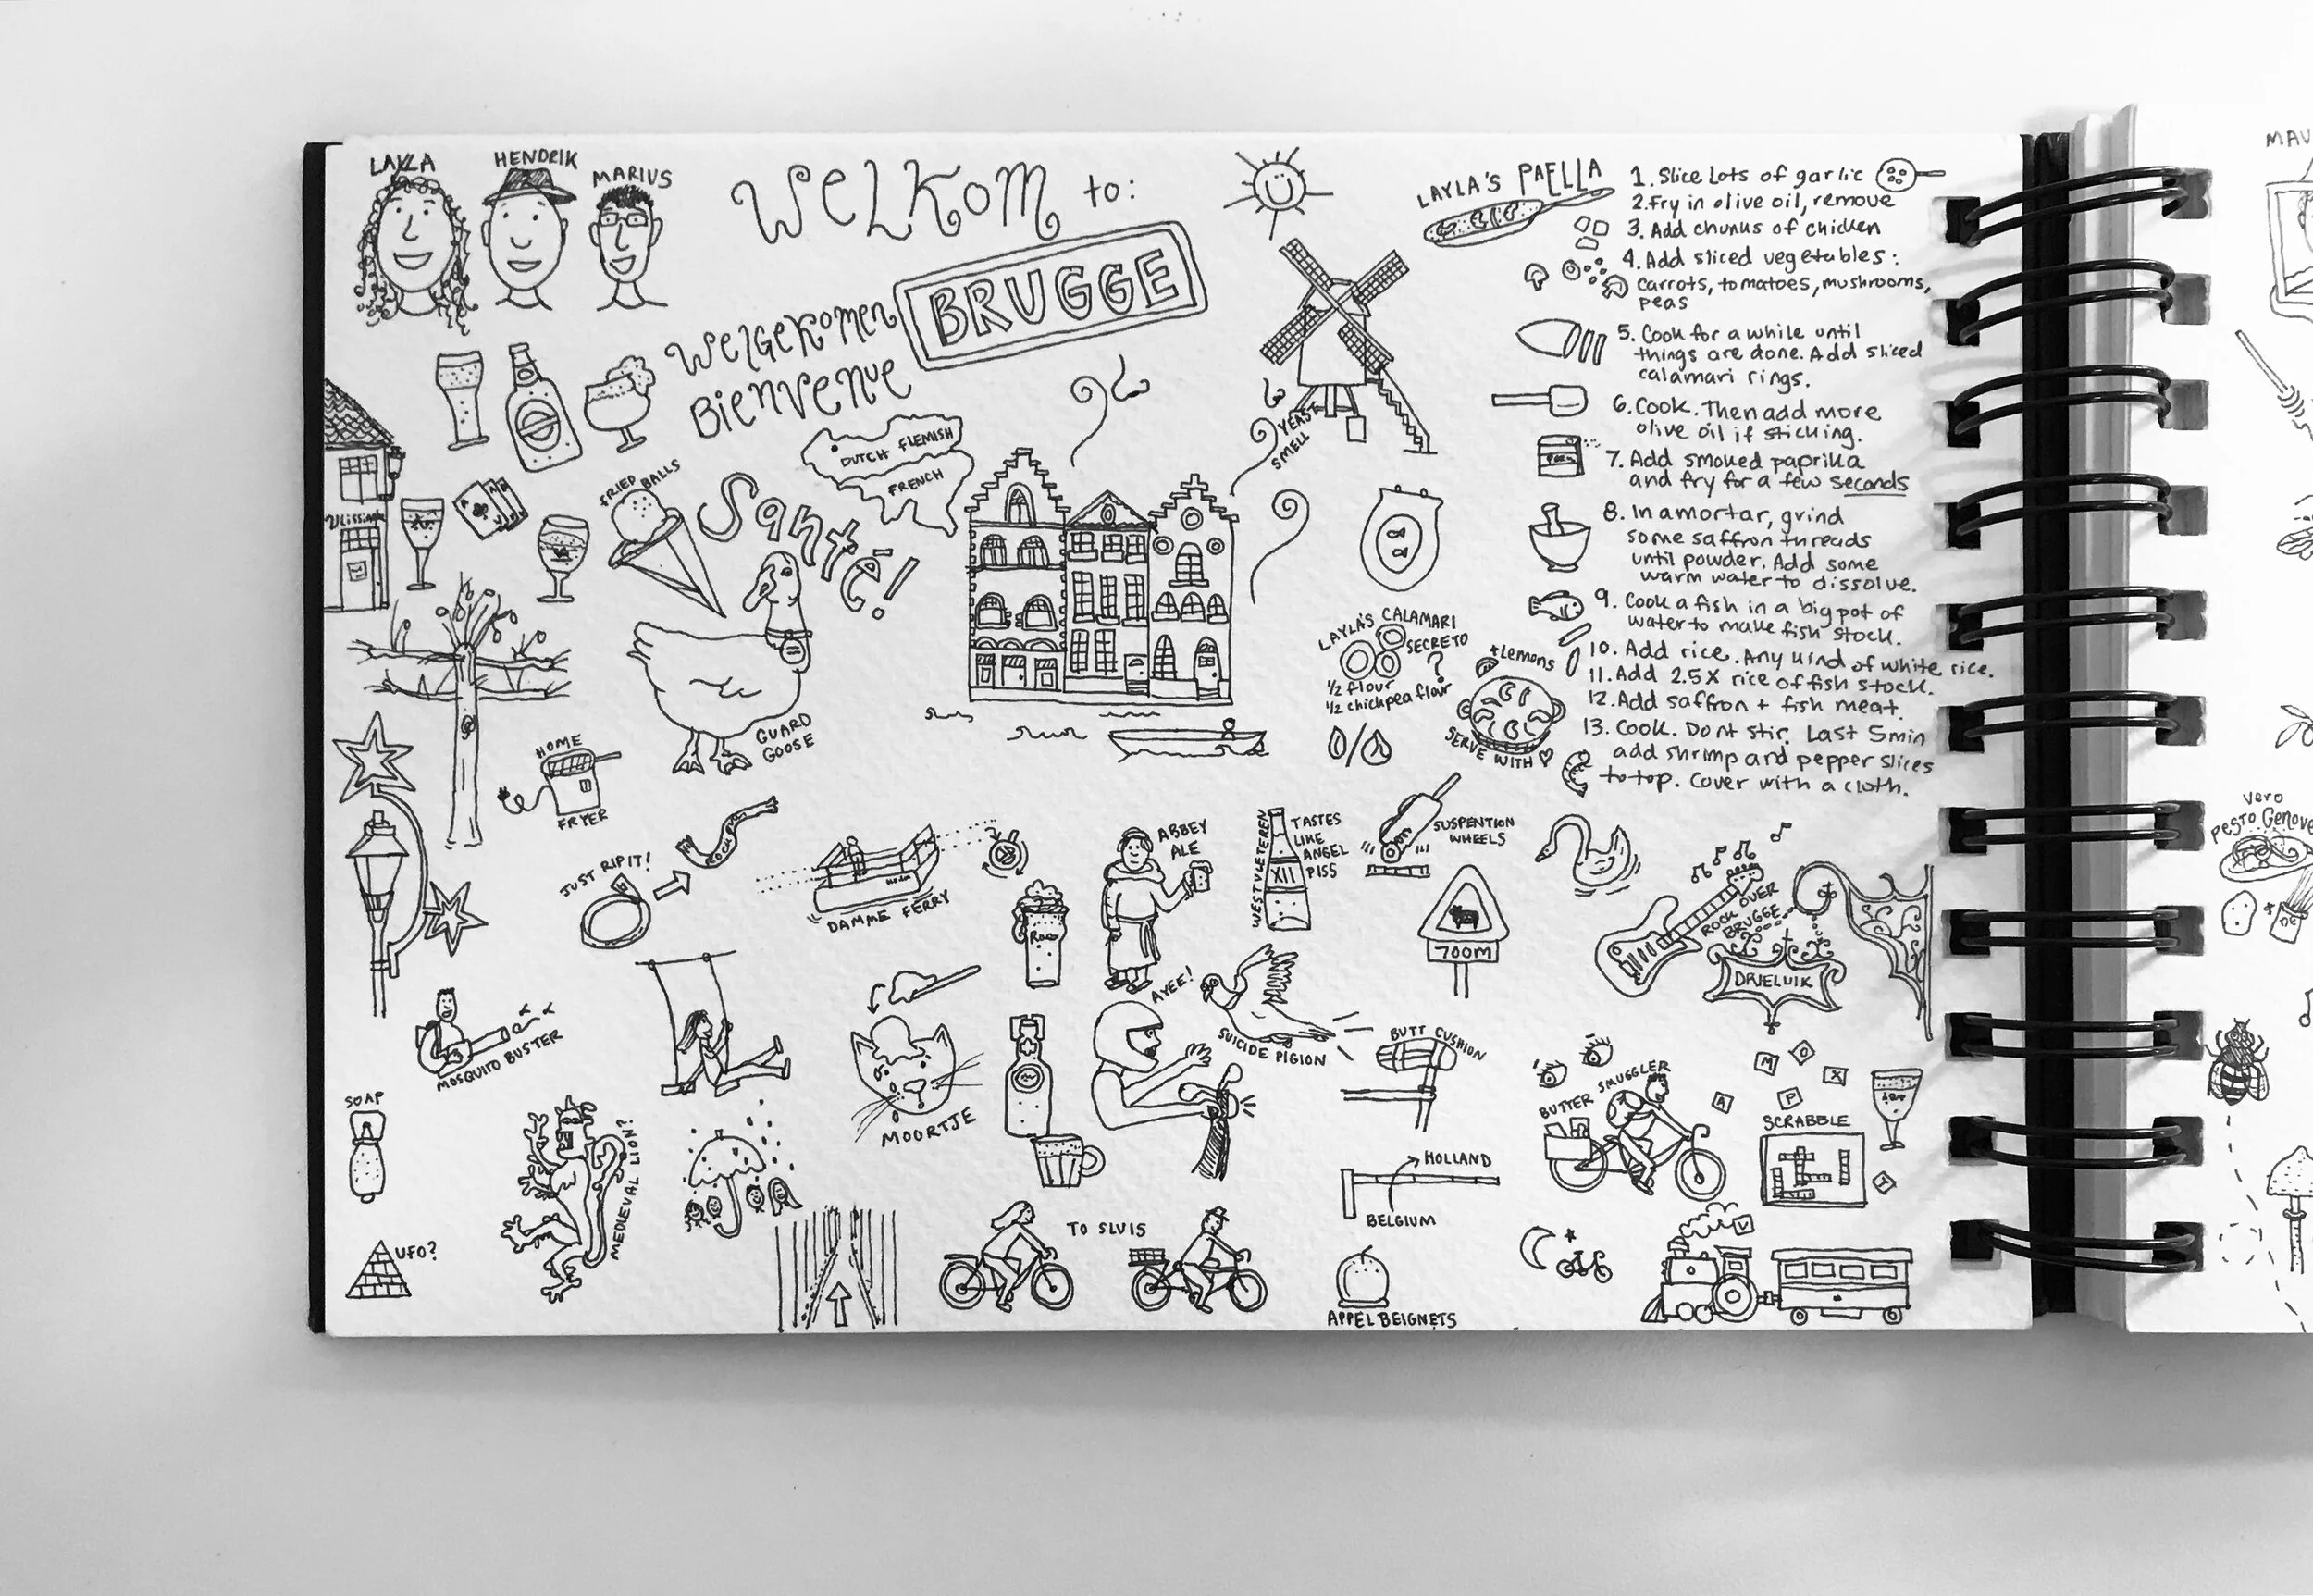 LAYLA
HENDRIK
MARIUS
WELKOM to:
BRUGGE
WELGEKOMEN
BIENVENUE
DUTCH FLEMISH
FRENCH
YEAST
SMELL
Vlissinghe
FRIED BALLS
Santé!
GUARD
GOOSE
HOME
FRYER
LAYLA'S PAELLA
1. Slice Lots of garlic
2. Fry in olive oil, remove
3. Add chunks of chicken
4. Add sliced vegetables:
carrots, tomatoes, mushrooms,
peas
5. Cook for a while until
things are done. Add sliced
calamari rings.
6. Cook. Then add more
olive oil if sticking.
7. Add smoked paprika
and fry for a few seconds
8. In a mortar, grind
some saffron threads
until powder. Add some
warm water to dissolve.
9. Cook a fish in a big pot of
water to make fish stock.
10. Add rice. Any kind of white rice.
11. Add 2.5X rice of fish stock.
12. Add saffron + fish meat.
13. Cook. Dont stir. Last 5min
add shrimp and pepper slices
to top. Cover with a cloth.
LAYLA'S CALAMARI
SECRETO
?
1/2 flour
1/2 chickpea flour
+ Lemons
SERVE WITH
JUST RIP IT!
ROCK
DAMME FERRY
ABBEY
ALE
WESTVLETEREN
XII
TASTES
LIKE
ANGEL
PISS
SUSPENTION
WHEELS
700m
ROCK OVER
BRUGGE
DRIELUIK
MOSQUITO BUSTER
MOORTJE
AYEE!
SUICIDE PIGION
BUTT CUSHION
BUTTER SMUGGLER
M
O
X
A
P
SCRABBLE
J
V
SOAP
MEDIEVAL LION?
UFO?
TO SLUIS
HOLLAND
BELGIUM
APPELBEIGNETS
MAU
vero
Pesto Genove